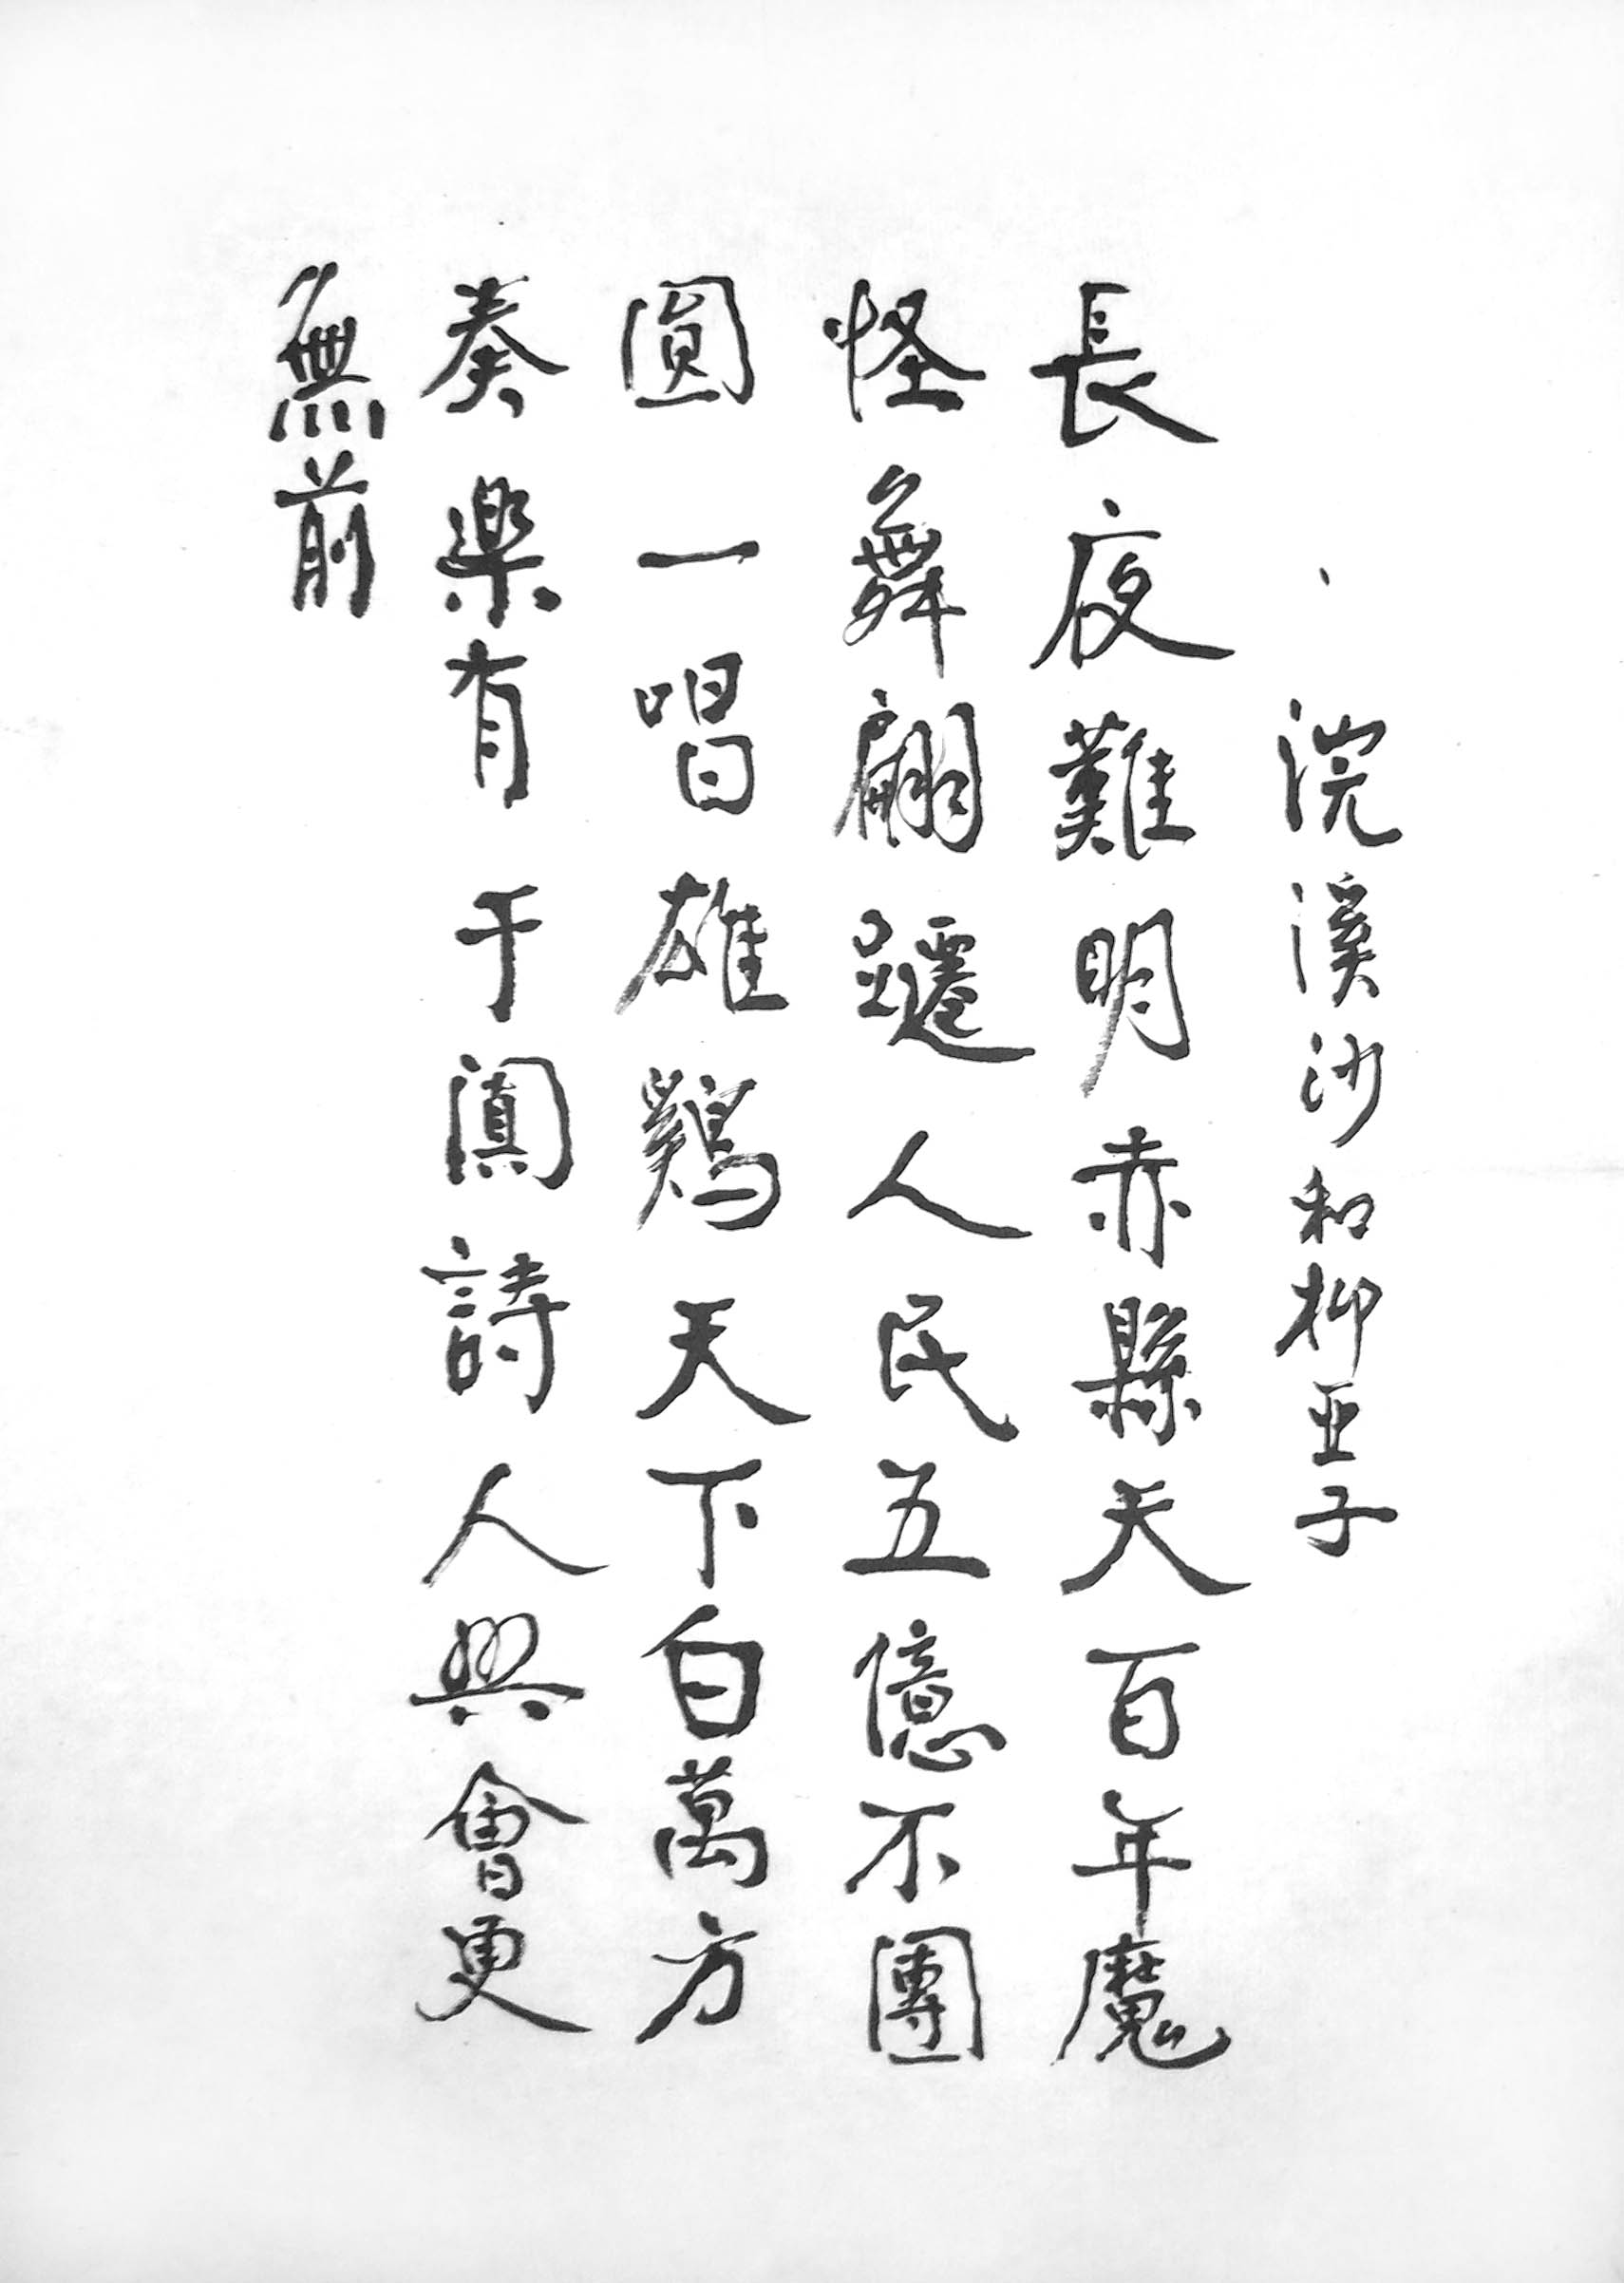 浣溪沙和柳亚子
長夜難明赤縣天百年魔
怪舞翩躚人民五億不團
圓一唱雄鷄天下白萬方
奏樂有于闐詩人興會更
無前